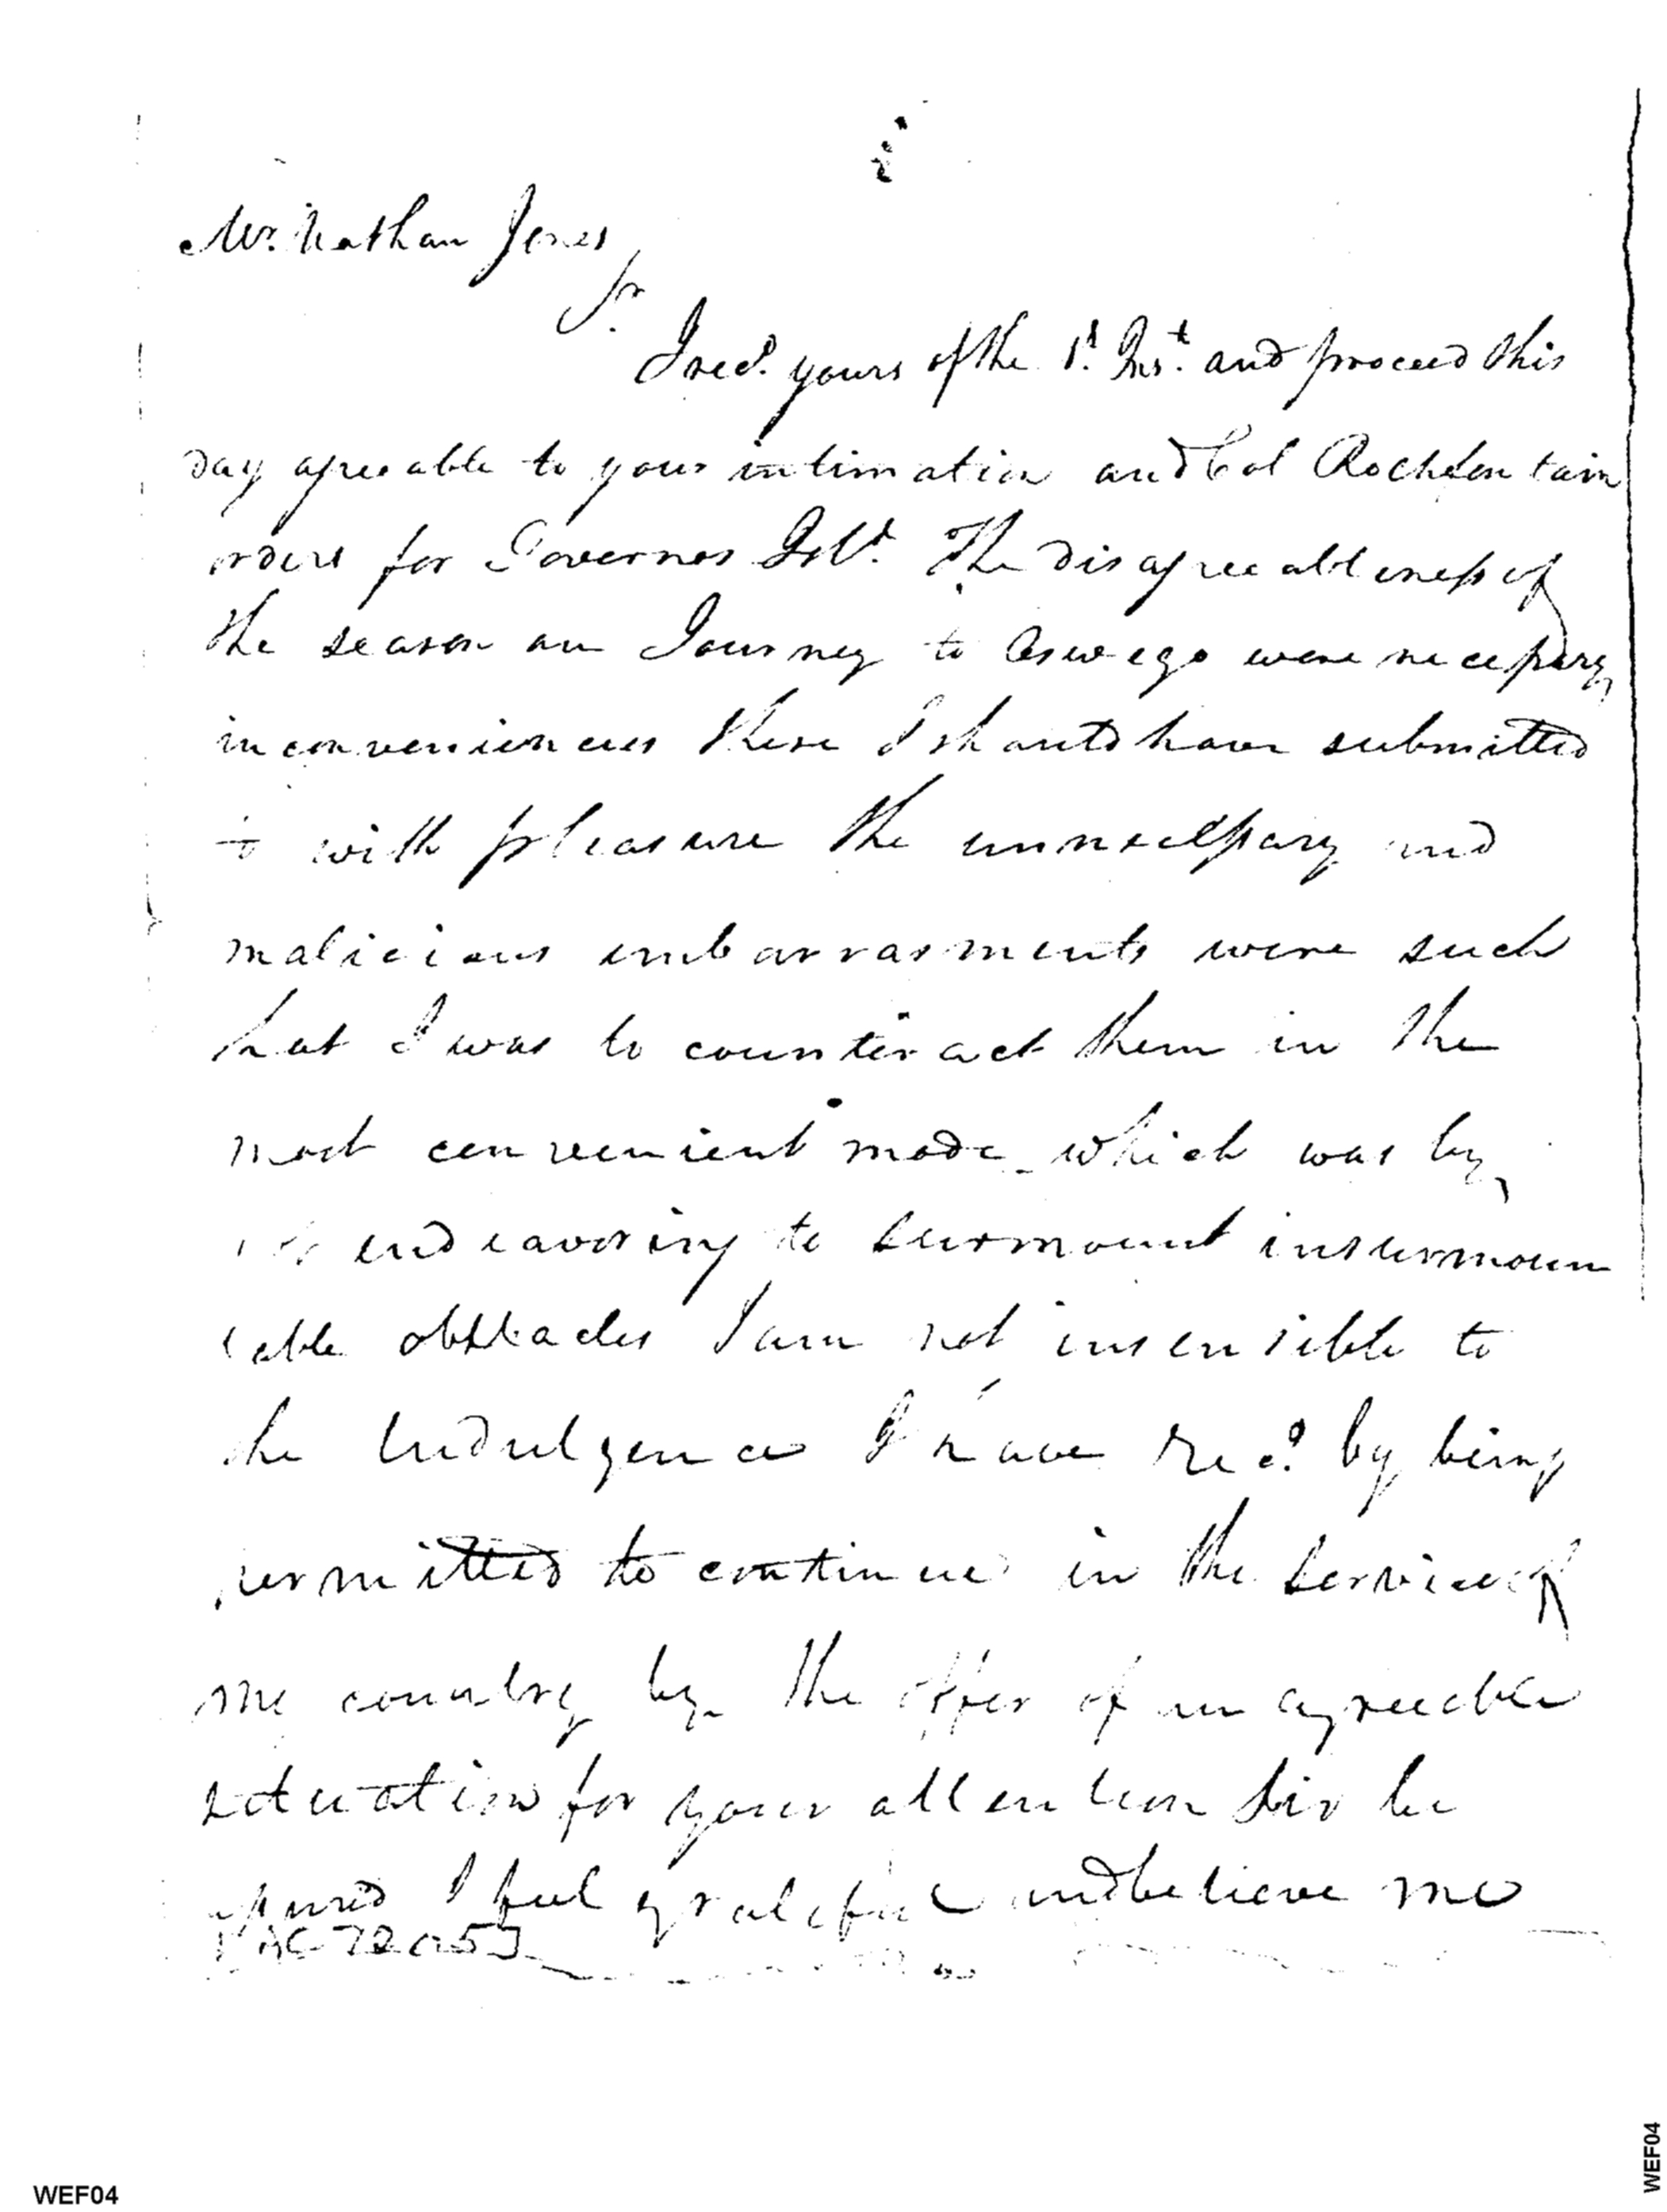 Mr. Nathan Jones
Sr.
I recd. yours of the 1st. Inst. and proceed this
day agreeable to your intimation and Col Rochfontain
orders for Governors Isld. The disagreeableness of
the season an Journey to Oswego were necessary
inconveniences these I should have submitted
to with pleasure the unnecessary and
malicious embarrasments were such
that I was to counteract them in the
most convenient mode which was by
endeavoring to surmount insurmoun
table obstacles I am not insensible to
the Indulgence I have recd. by being
permitted to continue in the service of
me country by the offer of an agreeable
situation for your attention Sir be
assured I feel grateful and believe me
WEF04
WEF04